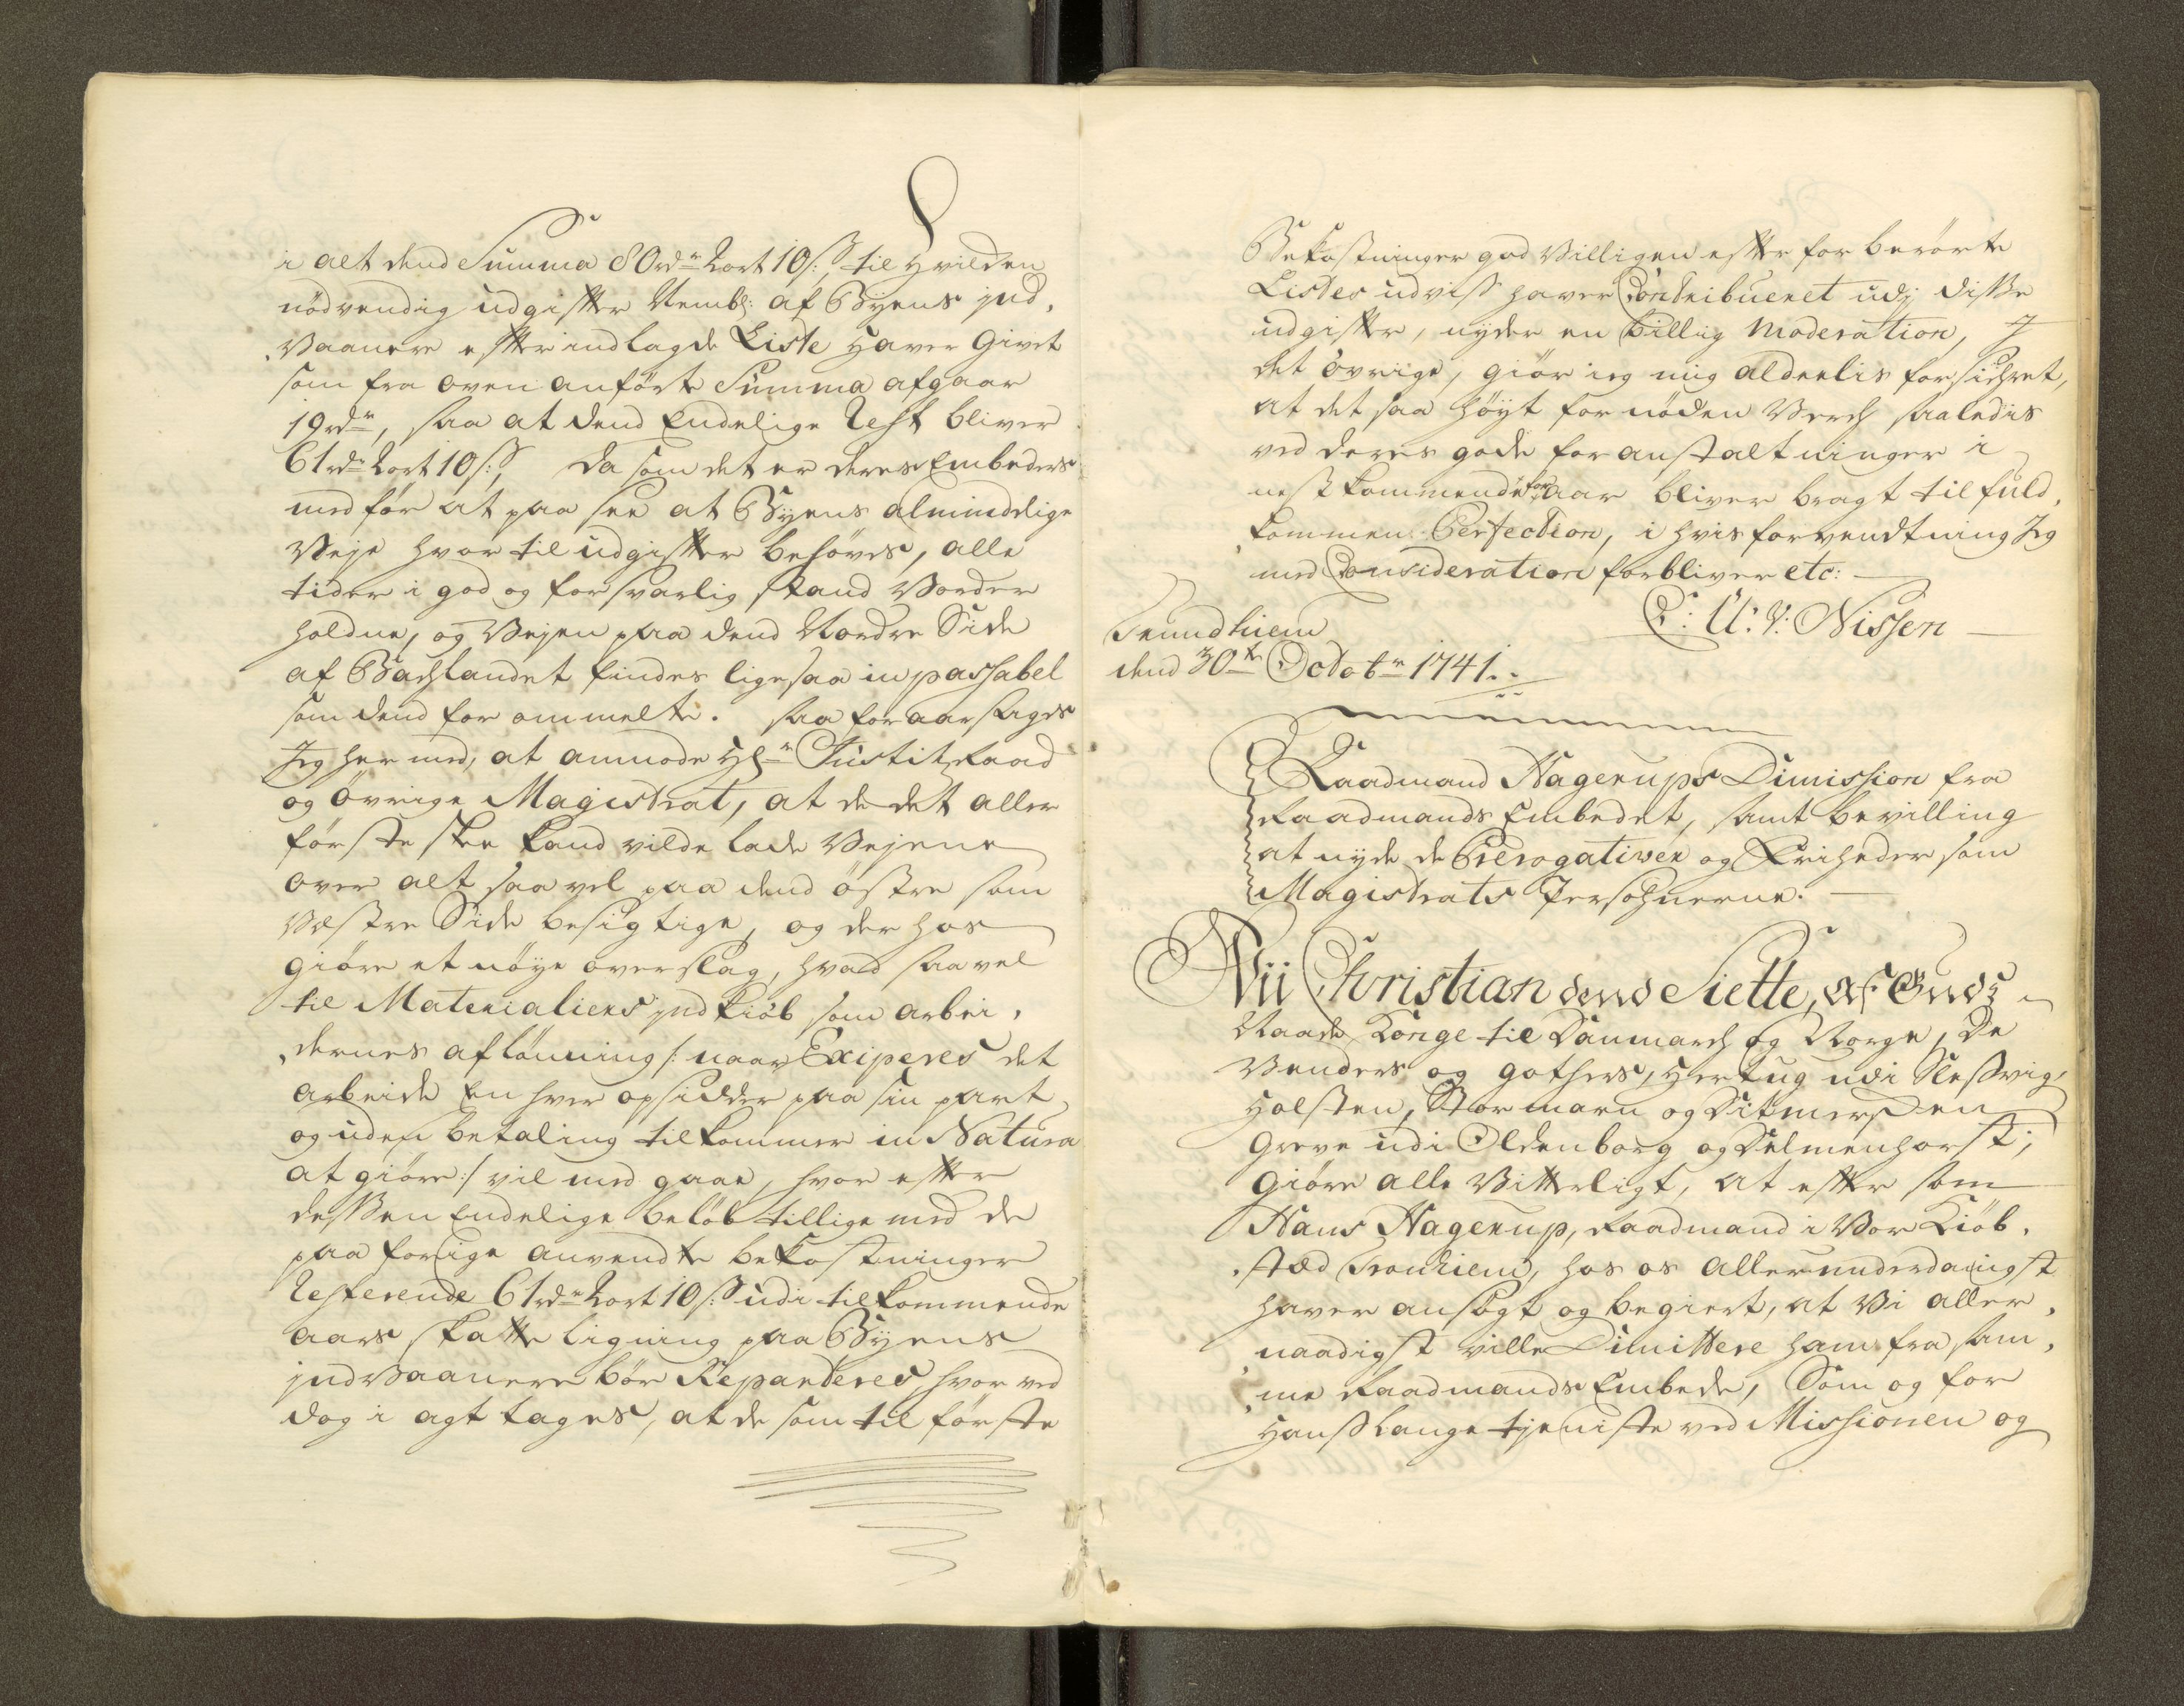 i alt dend Summa 80rdr 2ort 10s:, til hvilden
nödvendig udgifter Nembl: af Byens jnd,
,Vaanere efter indlagde Liste haver Givet
som fra oven anförte Summa afgaar
19rdr, saa at dend Endelige Rest bliver
61rdr 2ort 10s:, da som det er deres Embeders
medför at paa see at Byens almindelige
Veje hvor til udgifter behöves, alle
tider i god og forsvarlig stand Vorder
holdne, og Vejen paa dend Nordre Side
af Bachlandet findes ligesaa inpassabel
som dend for ommelte. saa foraarsages
Jeg her med, at anmode Hr Justitz Raad
og övrige Magistrat, at de det aller
förste skee kand vilde lade Vejene
over alt saa vel paa dend östre som
Væstre Side besigtige, og der hos
giöre et nöye overslag, hvad saa vel
til Materialiers jndkiöb som arbei,
,dernes aflönning /: naar Exiperes det
arbeide En hver opsidder paa sin part
og uden betaling tilkommer in Natura
at giöre :/ vil med gaae, hvor efter
dessen Endelige beløb tillige med de
paa forige anvendte bekostninger
Resterende 61rdr 2ort 10s: udi tilkommende
aars skatte ligning paa Byens
jndvaanere bör Reparteres hvor ved
dog i agt tages, at de som til förste
Bekostninger god Villigen efter for berörte
Listes udviss haver Contribueret udj disse
udgifter, nyder en billig Moderation, J
det övrige, giör ieg mig aldeelis forsichret,
at det saa höyt fornöden Verch saaledis
ved deres gode foranstaltninger i
nestkommende for aar bliver bragt til fuld,
,kommen Perfection, i hvis forvendtning Jeg
med Consideration forbliver etc:
C: U: V: Nissen
Trundhiem
dend 30te Octobr 1741.
Raadmand Hagerups Dimission fra
Raadmands Embedet, samt bevilling
at nyde de Prerogativer og Friheder som
Magistrats Persohnerne.
Vii Christian dend Siette, af Guds
Naade Konge til Danmarch og Norge, De
Venders og Gothers, Hertug udi Slessvig,
Holsten, Stormarn og Ditmersken
Greve udi Oldenborg og Delmenhorst;
Giöre alle Vitterligt, at efter som
Hans Hagerup, Raadmand i Vor Kiöb,
,stæd Tronhiem, hos os allerunderdanigst
haver ansögt og begiert, at Vi aller,
,naadigst ville Dimittere ham fra sam,
,me Raadmands Embede, Som og for
Hanss lange tjeniste ved Missionen og